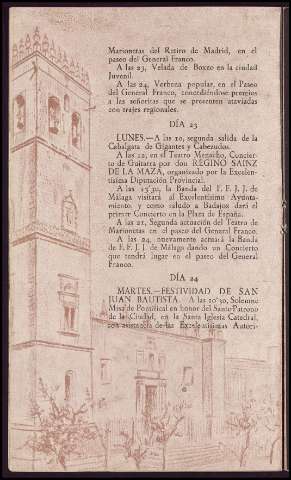 Marionetas del Retiro de Madrid, en el
paseo del General Franco.
A las 23, Velada de Boxeo en la ciudad
Juvenil.
A las 24, Verbena popular, en el Paseo
del General Franco, concediéndose premios
a las señoritas que se presenten ataviadas
con trajes regionales.
DÍA 23
LUNES.—A las 10, segunda salida de la
Cabalgata de Gigantes y Cabezudos.
A las 12, en el Teatro Menacho, Concier-
to de Guitarra por don REGINO SAINZ
DE LA MAZA, organizado por la Excelen-
tísima Diputación Provincial.
A las 13'30, la Banda del F. E. J. J. de
Málaga visitará al Excelentísimo Ayunta-
miento, y como saludo a Badajoz dará el
primer Concierto en la Plaza de España.
A las 21, Segunda actuación del Teatro de
Marionetas en el paseo del General Franco.
A las 24, nuevamente actuará la Banda
de F. E. J. J. de Málaga dando un Concierto
que tendrá lugar en el paseo del General
Franco.
DÍA 24
MARTES.—FESTIVIDAD DE SAN
JUAN BAUTISTA. A las 10'30, Solemne
Misa de Pontifical en honor del Santo Patrono
de la Ciudad, en la Santa Iglesia Catedral,
con asistencia de las Excelentísimas Autori-